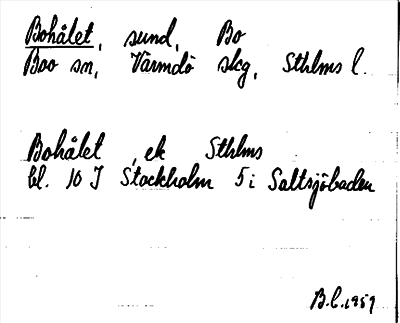 Bohålet, sund, Bo
Boo sn, Värmdö skg, Sthlms l.
Bohålet, ek Sthlms
bl. 10 I Stockholm 5 i Saltsjöbaden
B.C. 1959